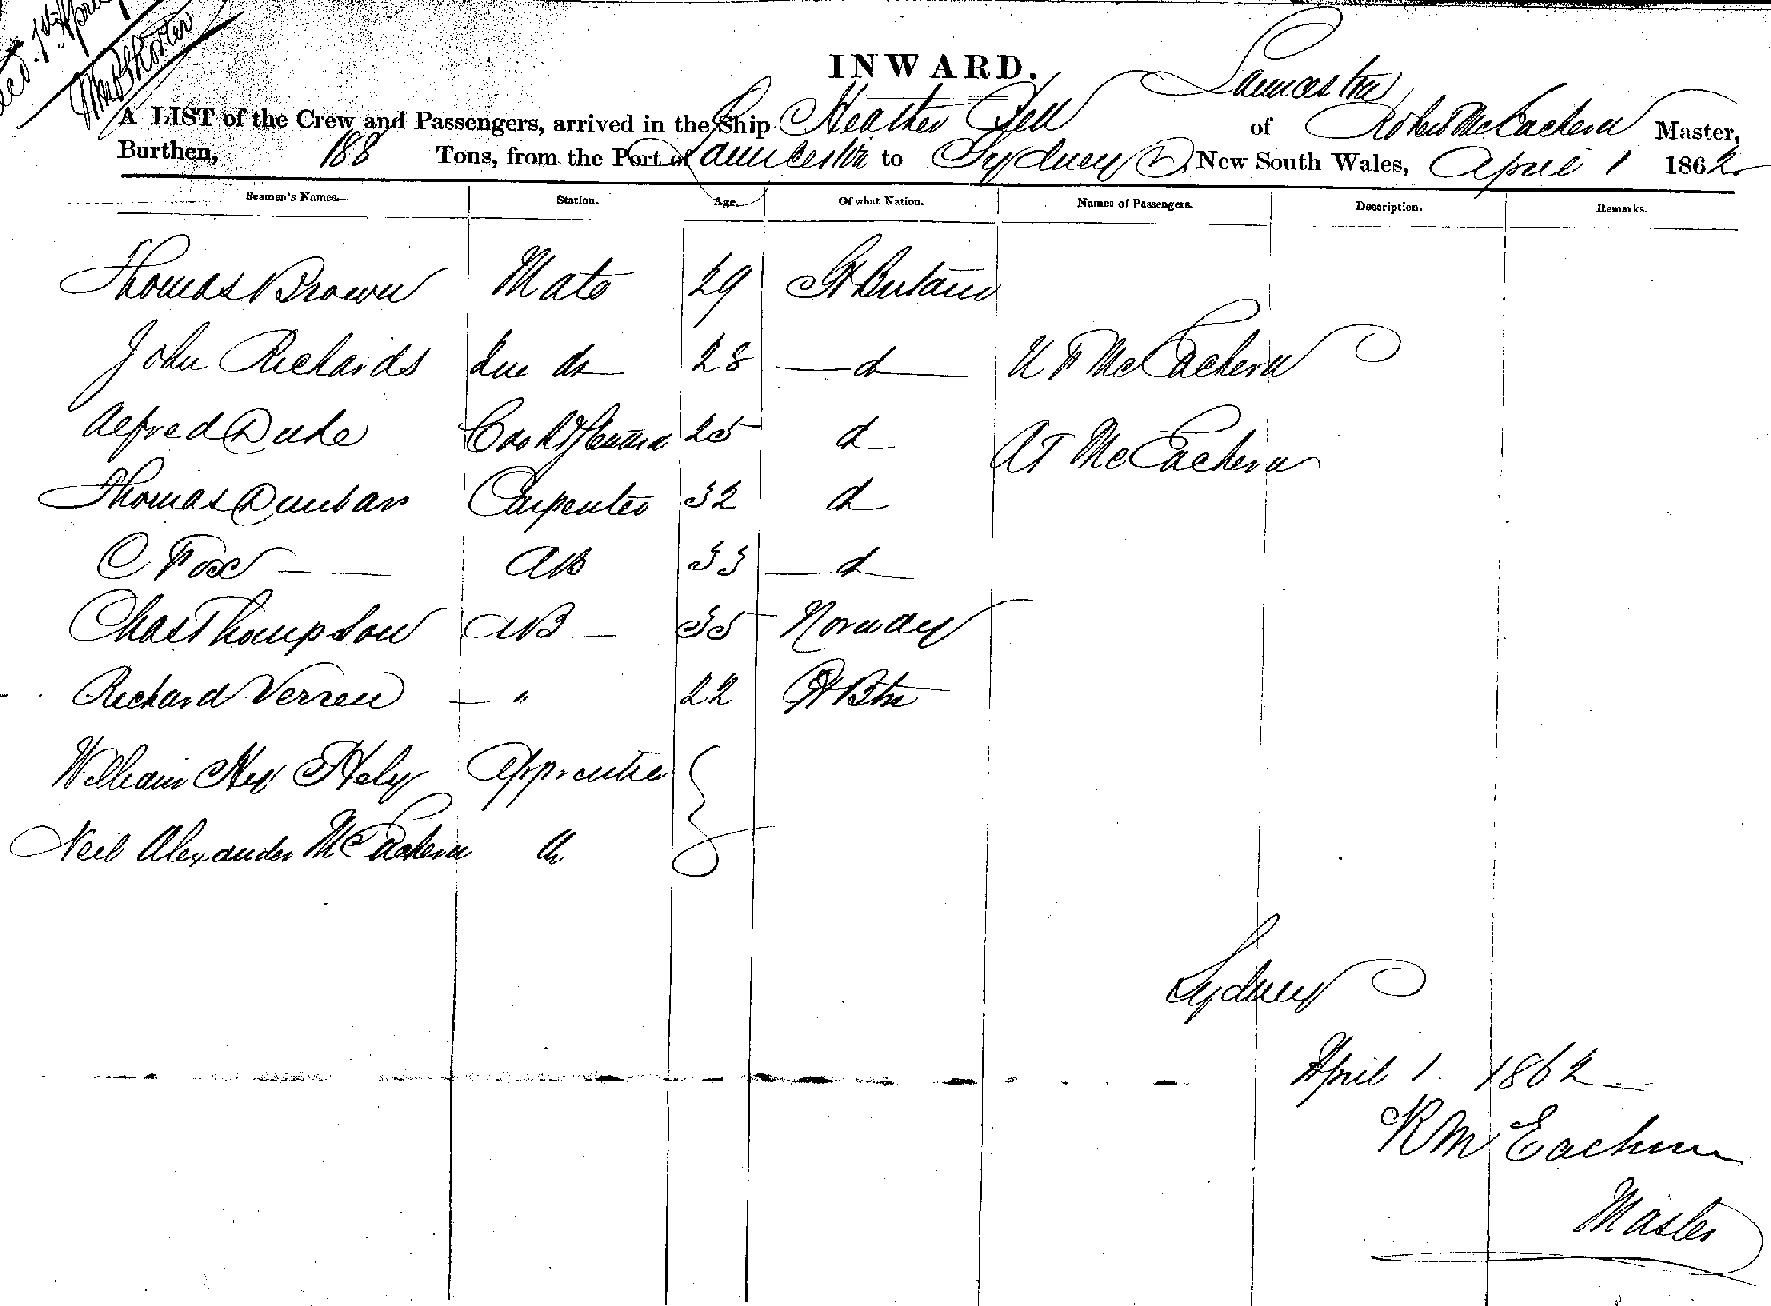 INWARD.
Launceston
A LIST of the Crew and Passengers, arrived in the Ship Heather Bell of Robert McEachern Master,
Burthen, 188 Tons, from the Port of Launceston to Sydney New South Wales, April 1 1862
Seamen's Names. Station. Age. Of what Nation. Names of Passengers. Description. Remarks.
Thomas Brown Mate 29 Gt Britain
John Richards 28 d McEachern
Alfred Duke Cook & Steward 25 d A T McEachern
Thomas Dunbar Carpenter 32 d
C Fox AB 33 d
Chas Thompson AB 35 Norway
Richard Verren " 22 Gt Btn
William Hex Hely Apprentice
Neil Alexander McEachern
Sydney
April 1 1862
R McEachern
Master